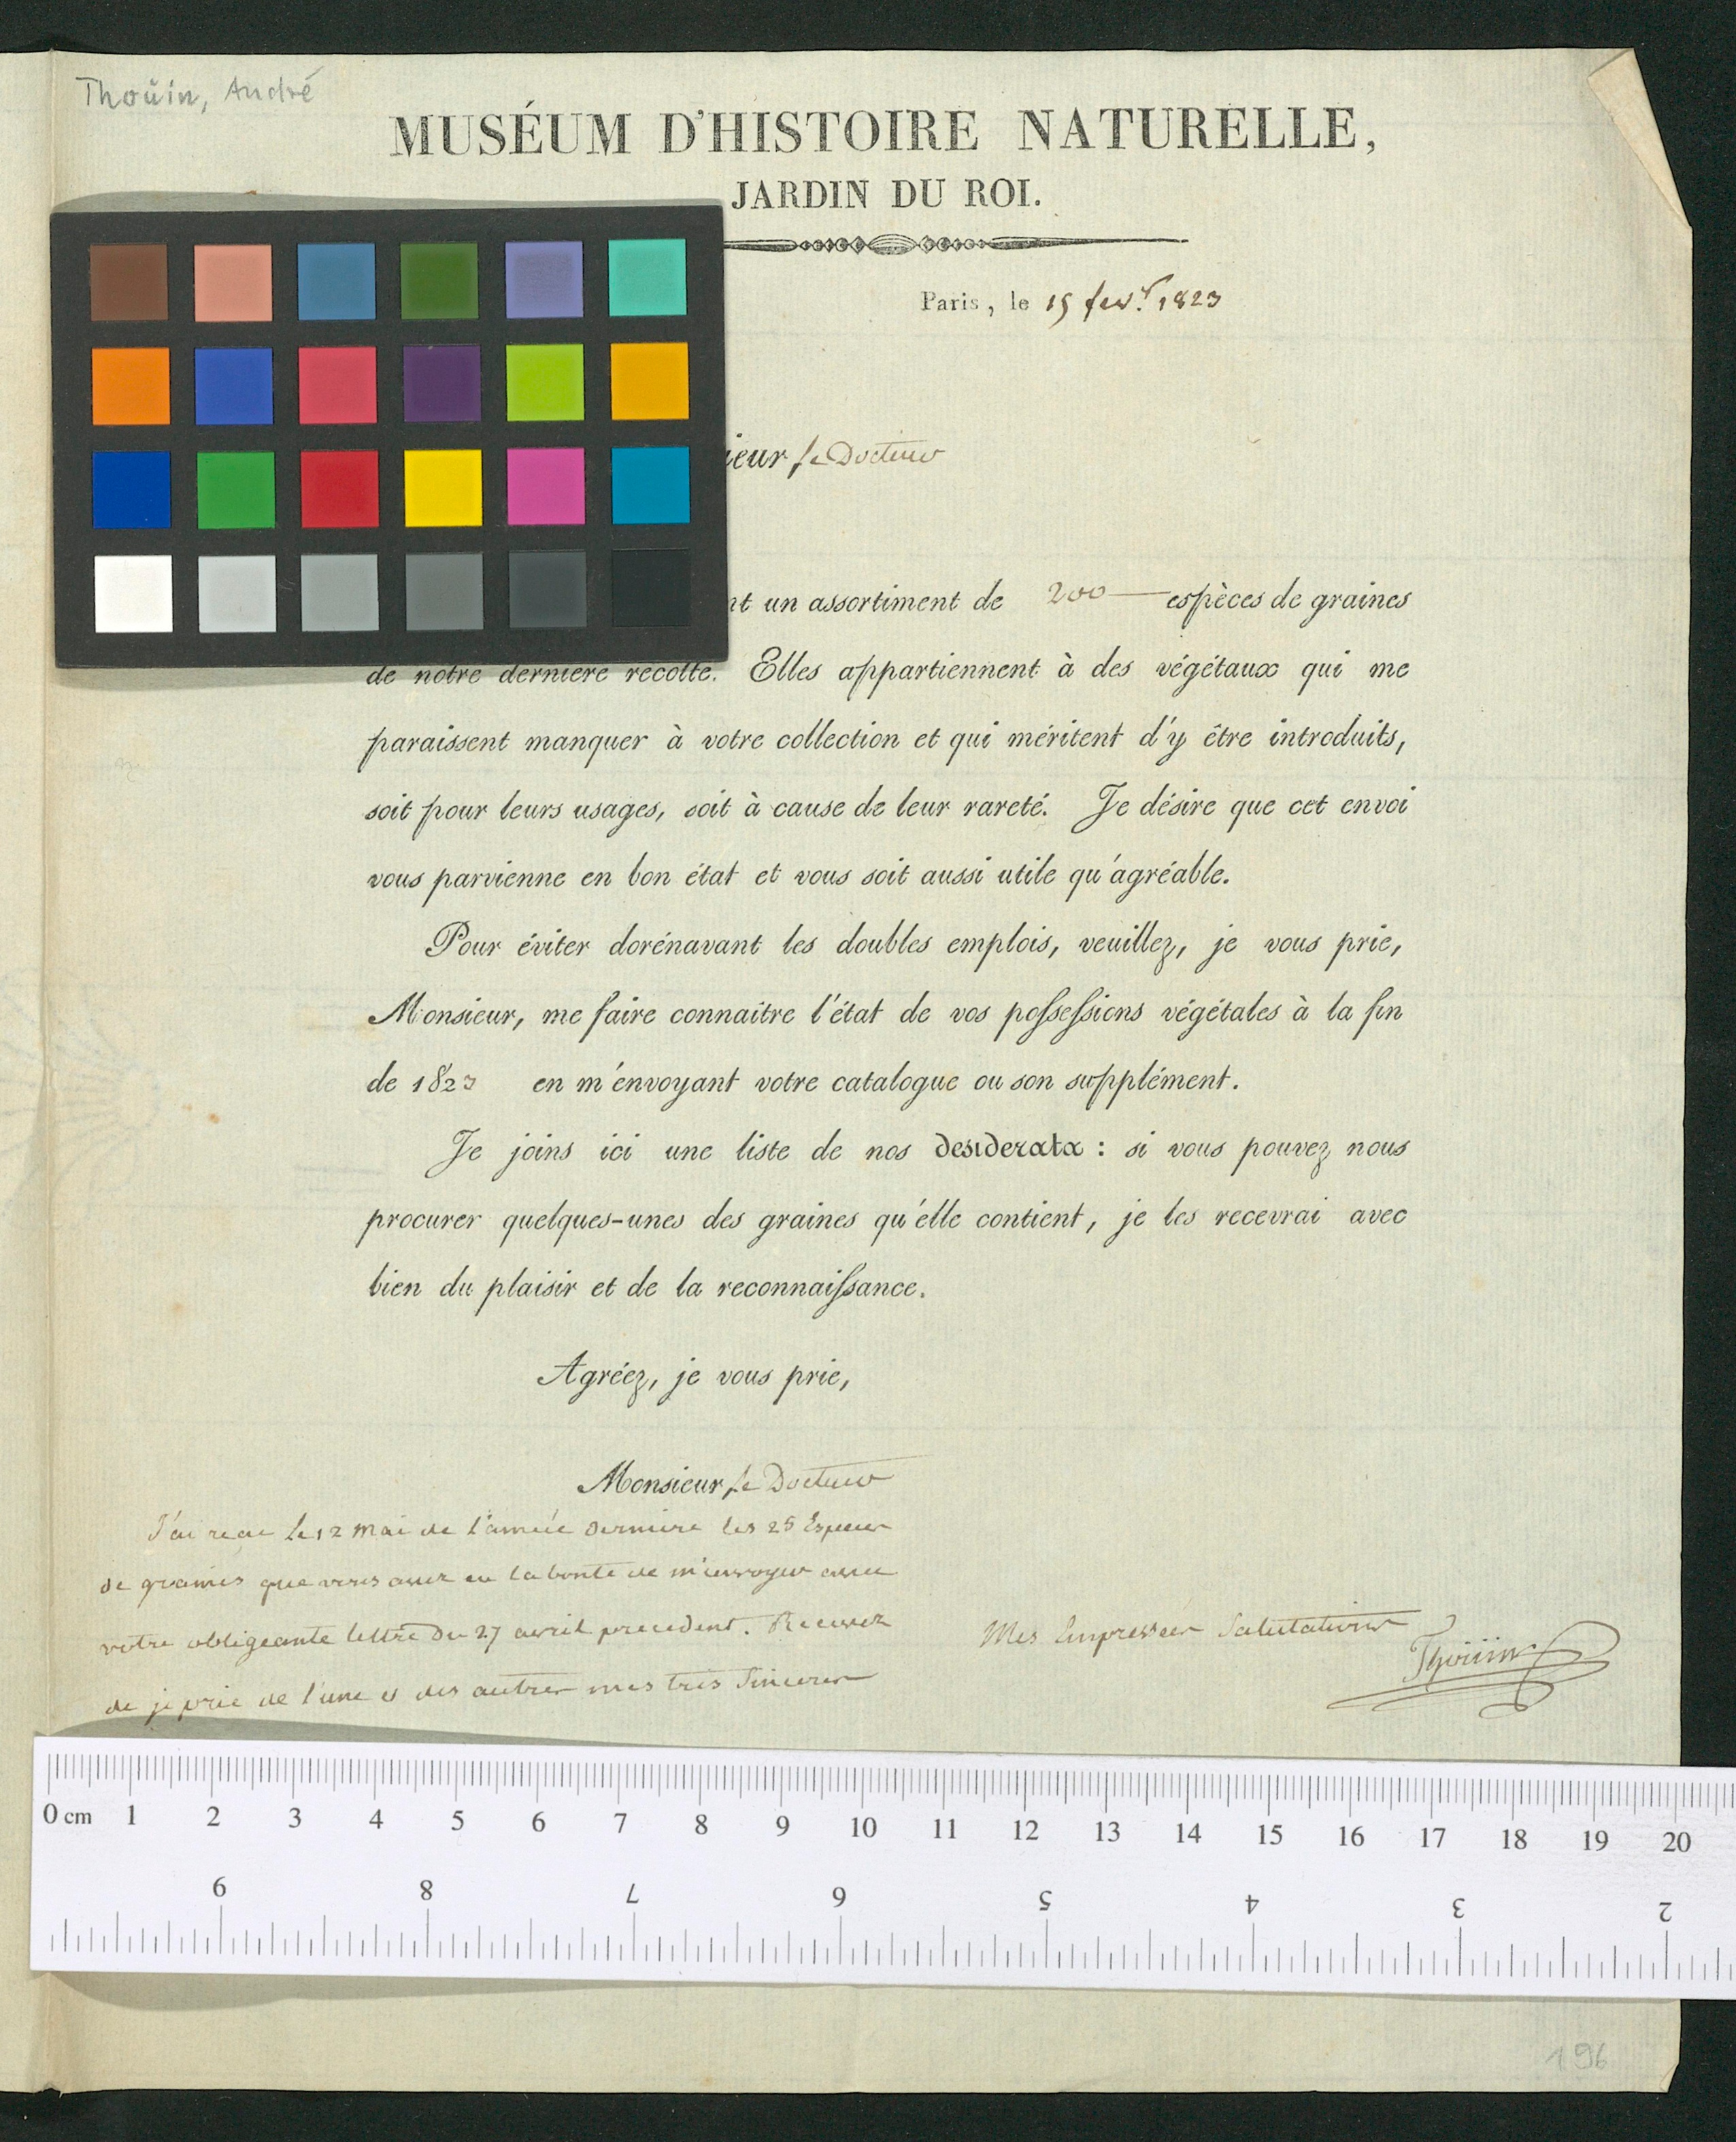 Thoüin, André
MUSÉUM D'HISTOIRE NATURELLE,
JARDIN DU ROI.
Paris, le 15 fevr. 1823
ieur le Docteur
nt un assortiment de 200 — espèces de graines
de notre dernière récolte. Elles appartiennent à des végétaux qui me
paraissent manquer à votre collection et qui méritent d'y être introduits,
soit pour leurs usages, soit à cause de leur rareté. Je désire que cet envoi
vous parvienne en bon état et vous soit aussi utile qu'agréable.
Pour éviter dorénavant les doubles emplois, veuillez, je vous prie,
Monsieur, me faire connaitre l'état de vos poſseſsions végétales à la fin
de 1823 en m'envoyant votre catalogue ou son supplément.
Je joins ici une liste de nos desiderata : si vous pouvez nous
procurer quelques-unes des graines qu'elle contient, je les recevrai avec
bien du plaisir et de la reconnaiſsance.
Agréez, je vous prie,
Monsieur, le Docteur
J'ai recu le 12 mai de l'année derniere les 25 Especes
de graines que vous avez eu la bonté de m'envoyer avec
votre obligeante lettre du 27 avril precedent. Recevez
de je prie de l'une et des autres mes très Sinceres
Mes Empressées Salutations
Thoüin
0 cm 1 2 3 4 5 6 7 8 9 10 11 12 13 14 15 16 17 18 19 20
9 8 7 6 5 4 3 2
196